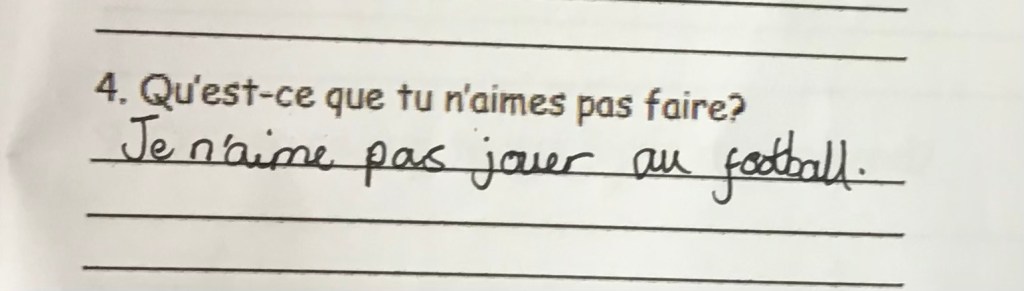 4. Qu'est-ce que tu n'aimes pas faire?
Je n'aime pas jouer au football.